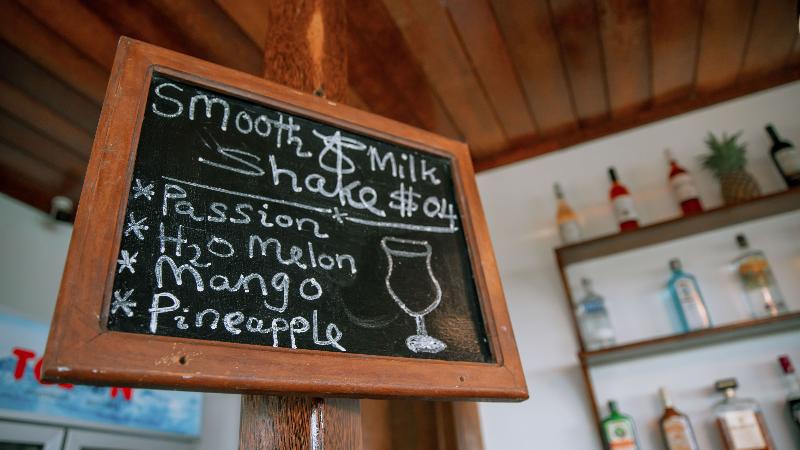 Smooth & Milk
Shake $04
* Passion
* H2O Melon
* Mango
* Pineapple